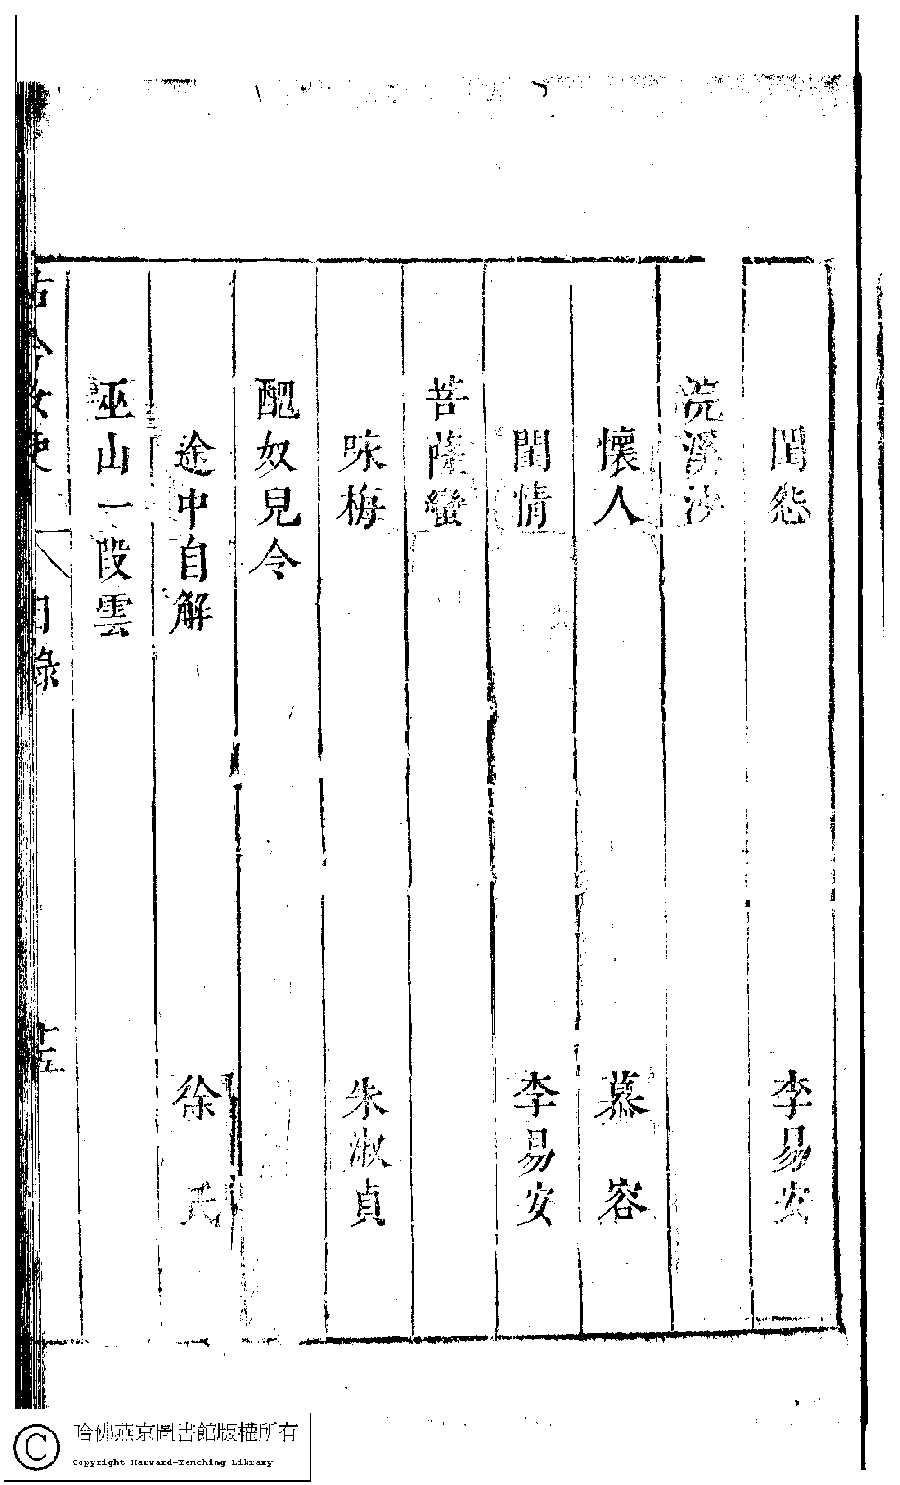 閨怨　李易安
浣溪沙
懷人　慕容
閨情　李易安
菩薩蠻
咏梅　朱淑貞
醜奴見令
途中自解　徐氏
巫山一段雲
古今女史　目錄　十五
哈佛燕京圖書館版權所有
Copyright Harvard-Yenching Library